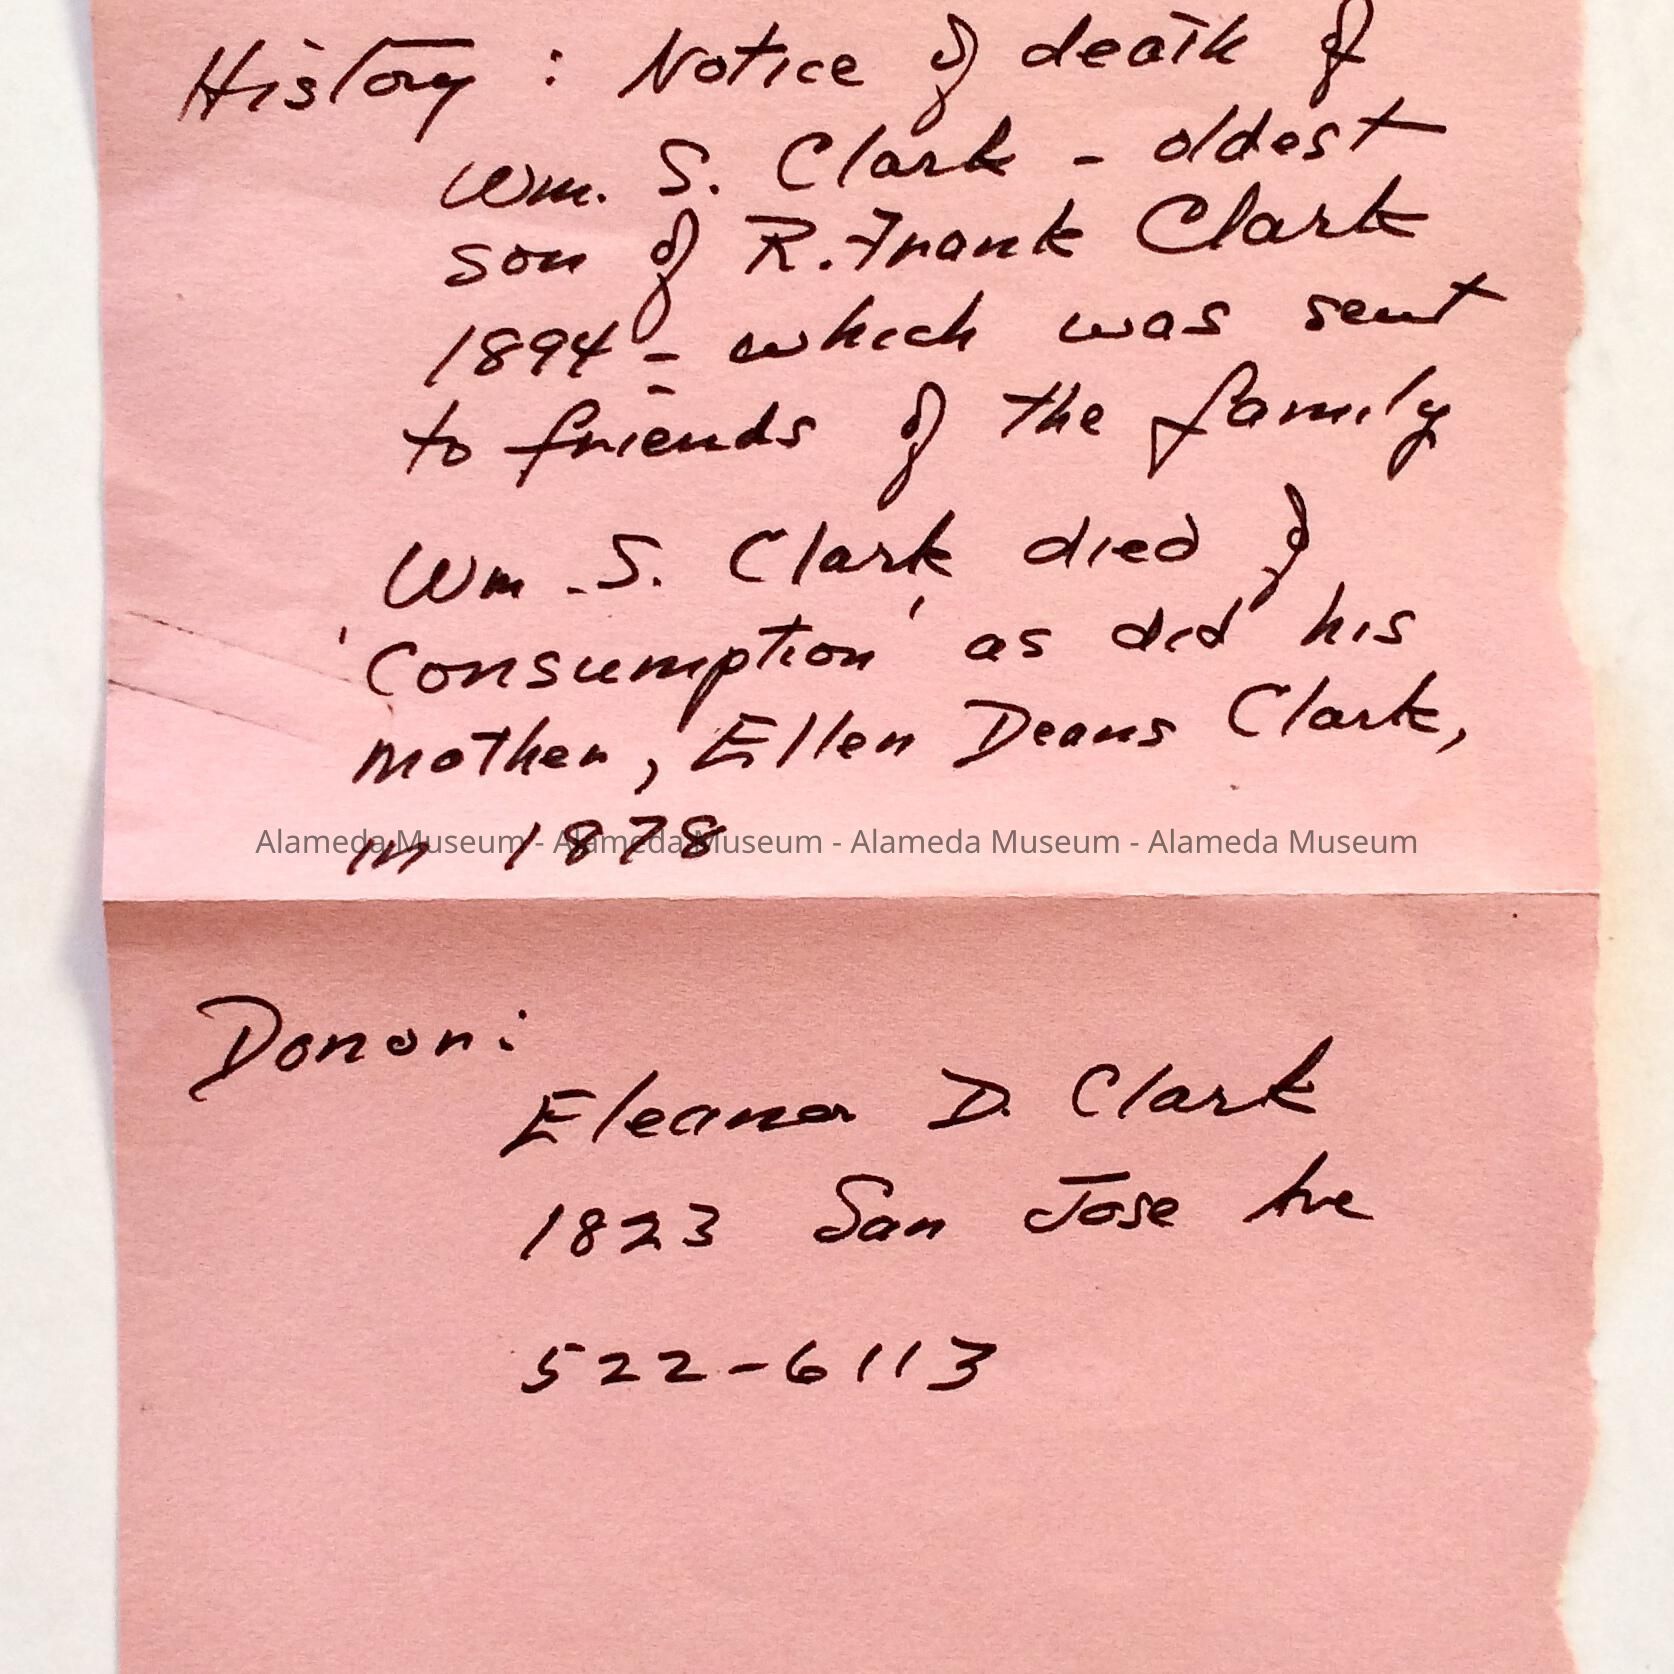 History : Notice of death of
Wm. S. Clark - oldest
son of R. Frank Clark
1894 - which was sent
to friends of the family
Wm. S. Clark died of
'Consumption' as did his
mother, Ellen Deans Clark,
in 1878
Alameda Museum - Alameda Museum - Alameda Museum - Alameda Museum
Donor:
Eleanor D. Clark
1823 San Jose Ave
522-6113